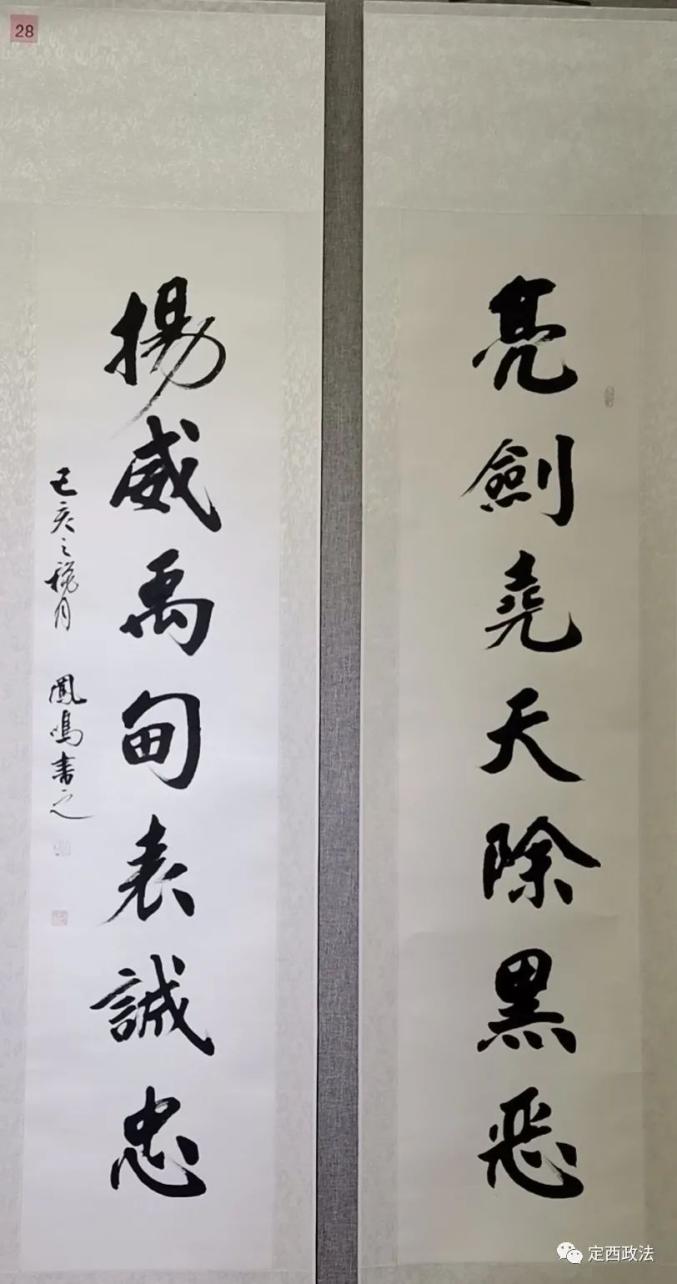 28
亮劍堯天除黑恶
揚威禹甸表誠忠
己亥之穐月 鳳鳴書之
定西政法